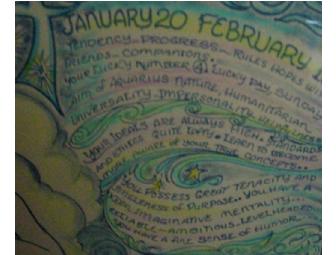 JANUARY 20 FEBRUARY
TENDENCY - PROGRESS - RULES HOPES
FRIENDS COMPANIONS.
YOUR LUCKY NUMBER 4 LUCKY DAY SUNDAY
AIM OF AQUARIUS NATURE, HUMANITARIAN
UNIVERSALITY - IMPERSONALITY
YOUR IDEALS ARE ALWAYS HIGH. STANDARDS
AND ETHICS QUITE LOFTY. LEARN TO BECOME
AWARE OF YOUR TRUE CONCEPTS..
YOU POSSESS GREAT TENACITY AND
OF PURPOSE.. YOU HAVE A
IMAGINATIVE MENTALITY...
RELIABLE - AMBITIOUS - LEVELHEADED -
YOU HAVE A SENSE OF HUMOR.